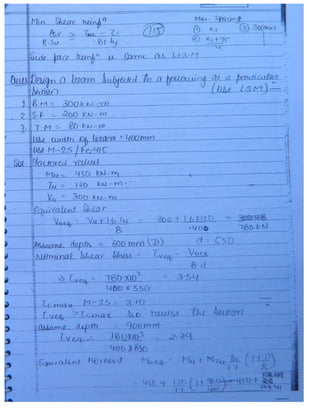 Min Shear reinfⁿ
Max Spacing
Asv / B·Sv = Tve - Tc / .87 fy
(115)
① x1 ③ 300mm
② x1+y1 / 4
Side face reinfⁿ is same as L.S.M
Ques Design a beam subjected to a following at a particular
section (Use LSM)
1. B M = 300 KN-m
2. S.F = 200 KN-m
3. T M = 80 KN-m
Use width of beam = 400mm
Use M-25 / Fe-415
Sol Factored value
Mu = 450 KN-m
Tu = 120 KN-m
Vu = 300 KN-m
Equivalent Shear
Vueq = Vu + 1.6 Tu / B = 300 + 1.6×120 / .400 = 780 KN
Assume depth = 600 mm (D) d = 550
Nominal Shear Stress = τveq = Vueq / B·d
⇒ τveq = 780×10³ / 400 × 550 = 3.54
τcmax M-25 = 3.10
τveq > τcmax So revise the section
Assume depth = 900mm
τveq = 780×10³ / 400 × 850 = 2.29
Equivalent Moment Mueq = Mu + Tu / 1.7 (1 + D/B)
= 450 + 120 / 1.7 (1 +